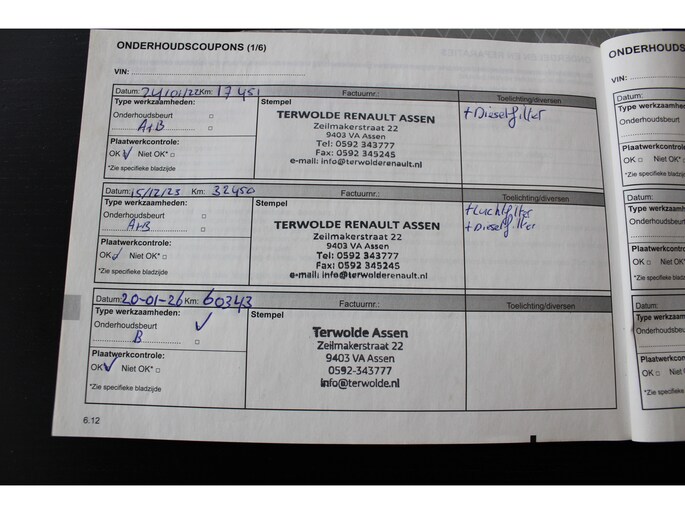 ONDERHOUDSCOUPONS (1/6)
VIN:
Datum: 24/01/22 Km: 17451 Factuurnr.: Toelichting/diversen
Type werkzaamheden:
Onderhoudsbeurt
A+B
Plaatwerkcontrole:
OK Niet OK*
*Zie specifieke bladzijde
Stempel
TERWOLDE RENAULT ASSEN
Zeilmakerstraat 22
9403 VA Assen
Tel: 0592 343777
Fax: 0592 345245
e-mail: info@terwolderenault.nl
+ Dieselfilter
Datum: 15/12/23 Km: 32450 Factuurnr.: Toelichting/diversen
Type werkzaamheden:
Onderhoudsbeurt
A+B
Plaatwerkcontrole:
OK Niet OK*
*Zie specifieke bladzijde
Stempel
TERWOLDE RENAULT ASSEN
Zeilmakerstraat 22
9403 VA Assen
Tel: 0592 343777
Fax: 0592 345245
e-mail: info@terwolderenault.nl
+ Luchtfilter
+ Dieselfilter
Datum: 20-01-26 Km: 60343 Factuurnr.: Toelichting/diversen
Type werkzaamheden:
Onderhoudsbeurt
B
Plaatwerkcontrole:
OK Niet OK*
*Zie specifieke bladzijde
Stempel
Terwolde Assen
Zeilmakerstraat 22
9403 VA Assen
0592-343777
info@terwolde.nl
6.12
ONDERHOUDS
VIN:
Datum:
Type werkzaamhe
Onderhoudsbeurt
Plaatwerkcontrole
OK Niet OK*
*Zie specifieke bla
Datum:
Type werkzaamhe
Onderhoudsbeurt
Plaatwerkcontrole
OK Niet OK*
*Zie specifieke bla
Datum:
Type werkzaamhe
Onderhoudsbeurt
Plaatwerkcon
OK Niet OK
*Zie specifieke